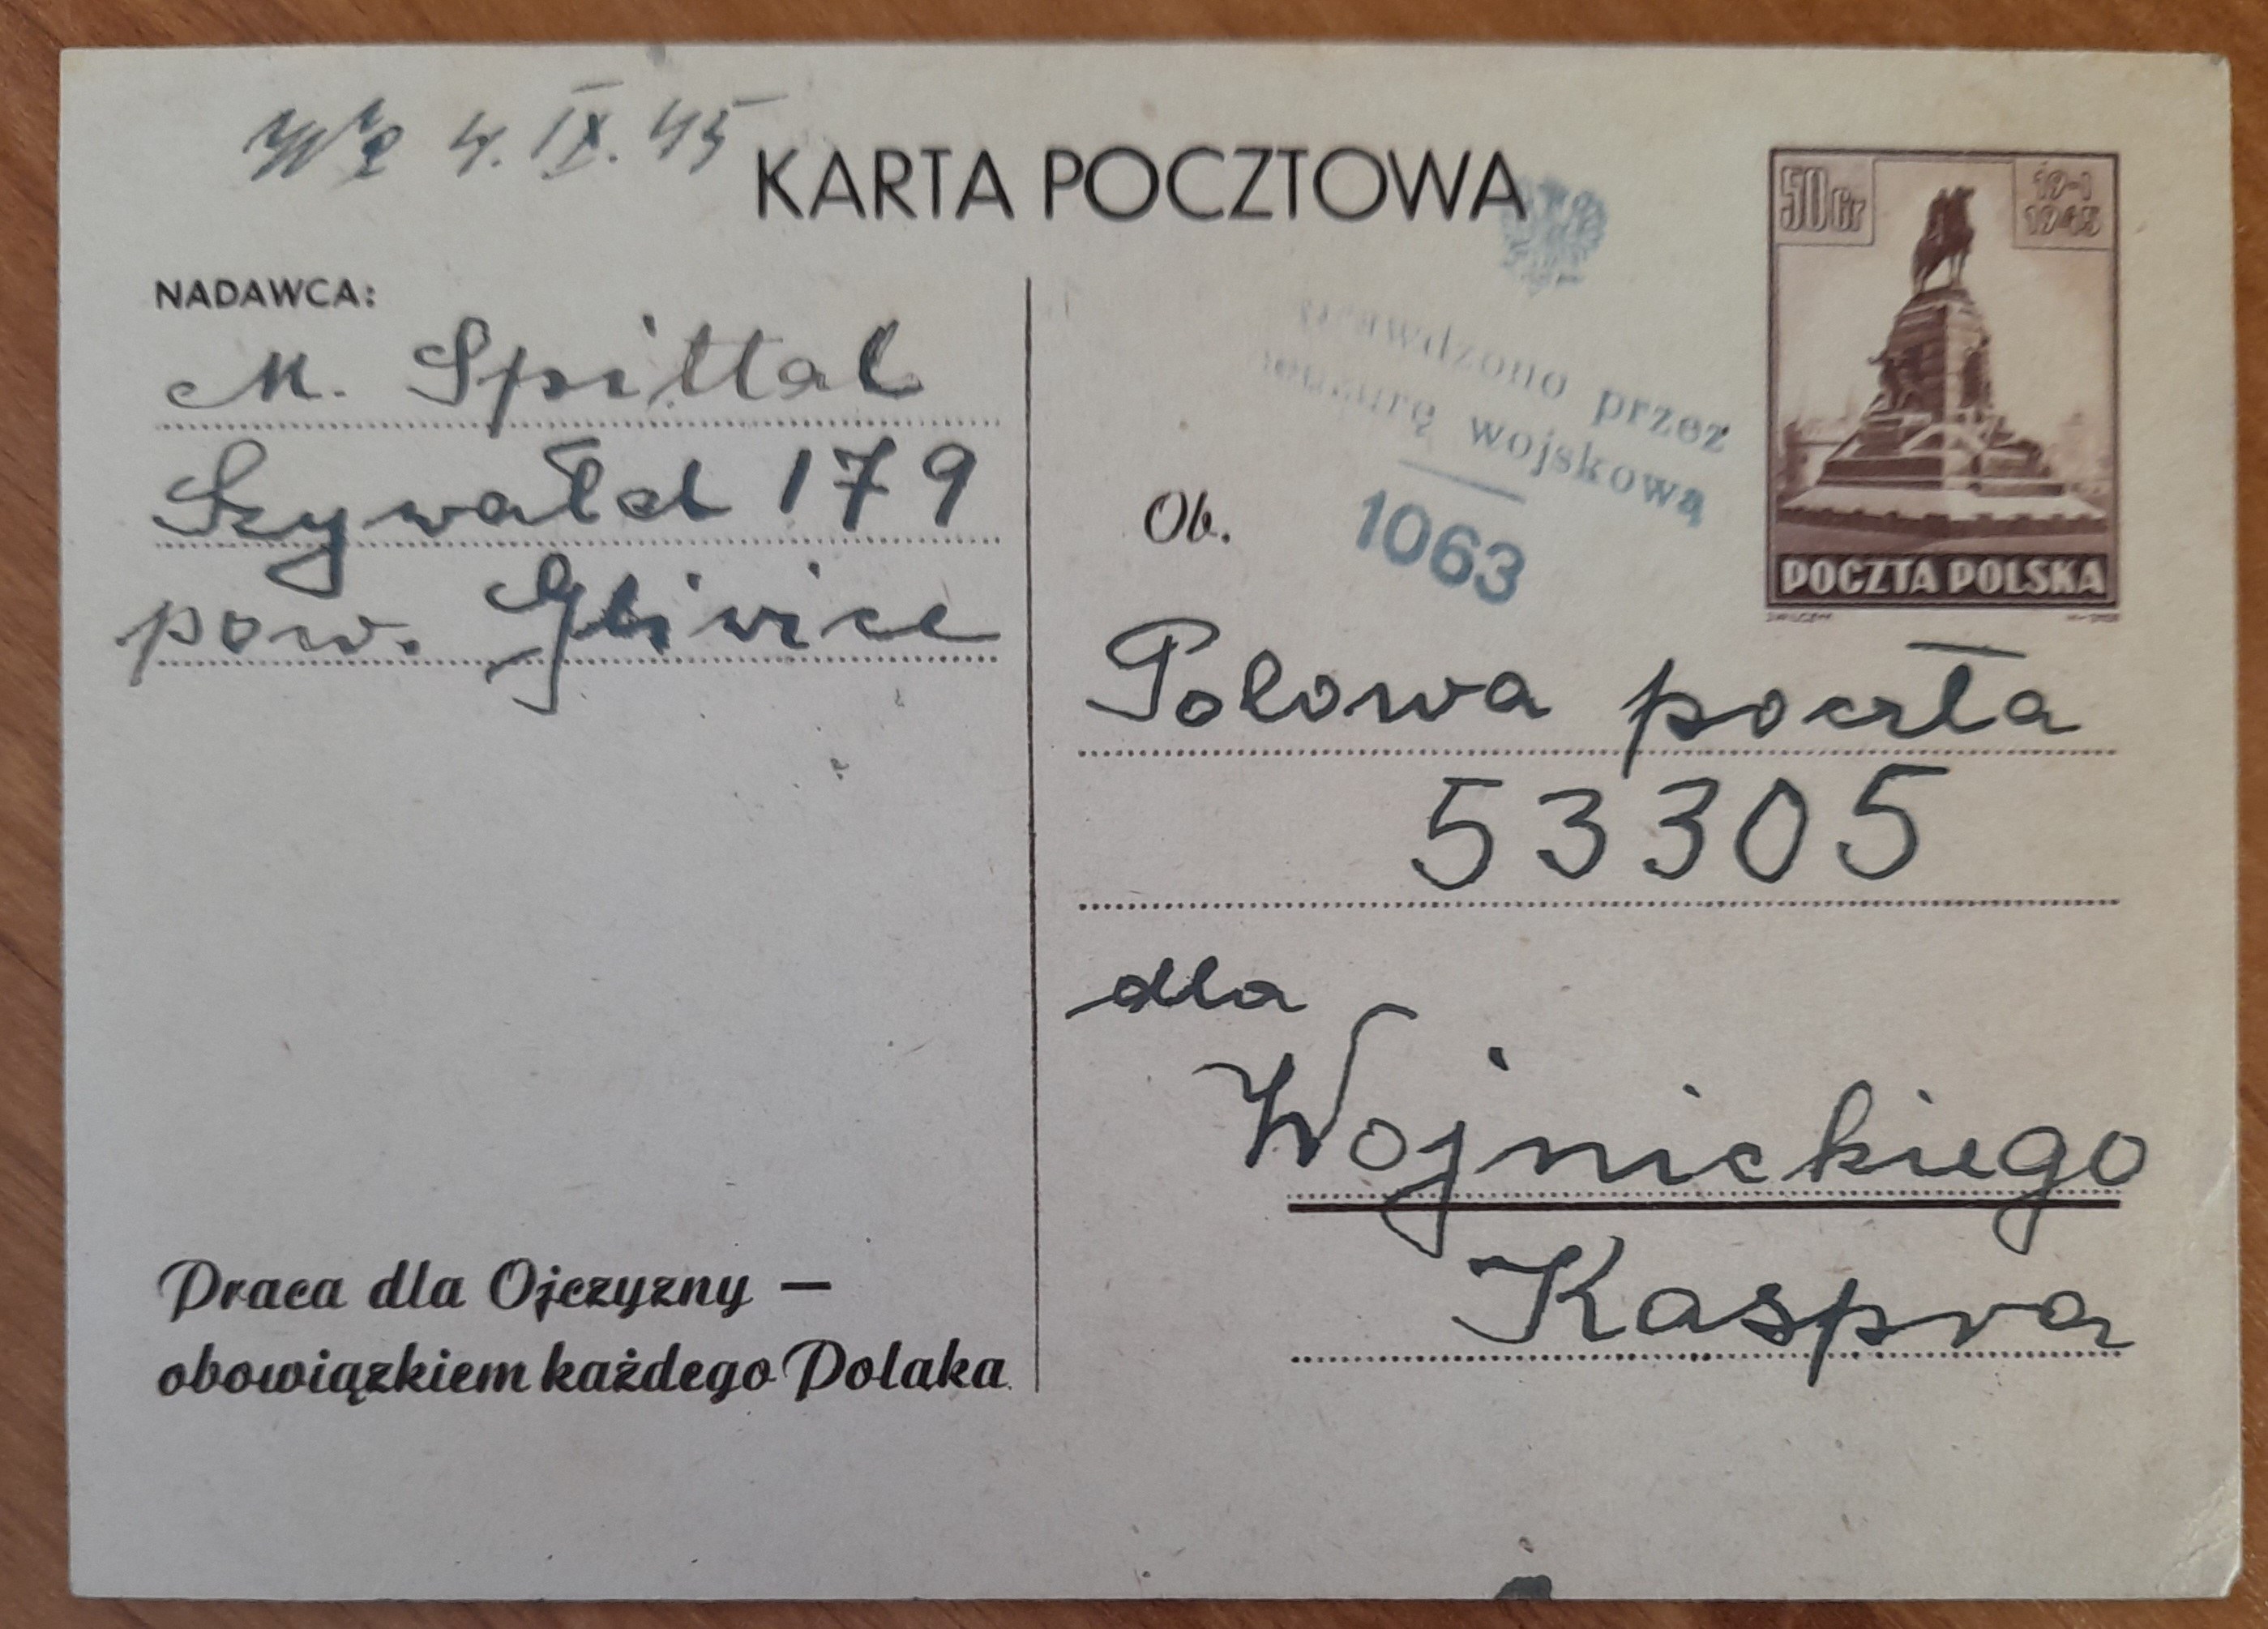 4. IX. 45
KARTA POCZTOWA
50 Gr
19-1
1945
POCZTA POLSKA
NADAWCA:
M. Spittal
Szywałd 179
pow. Gliwice
Praca dla Ojczyzny —
obowiązkiem każdego Polaka
przez
wojskową
1063
Ob.
Polowa poczta
53305
dla
Wojnickiego
Kaspra